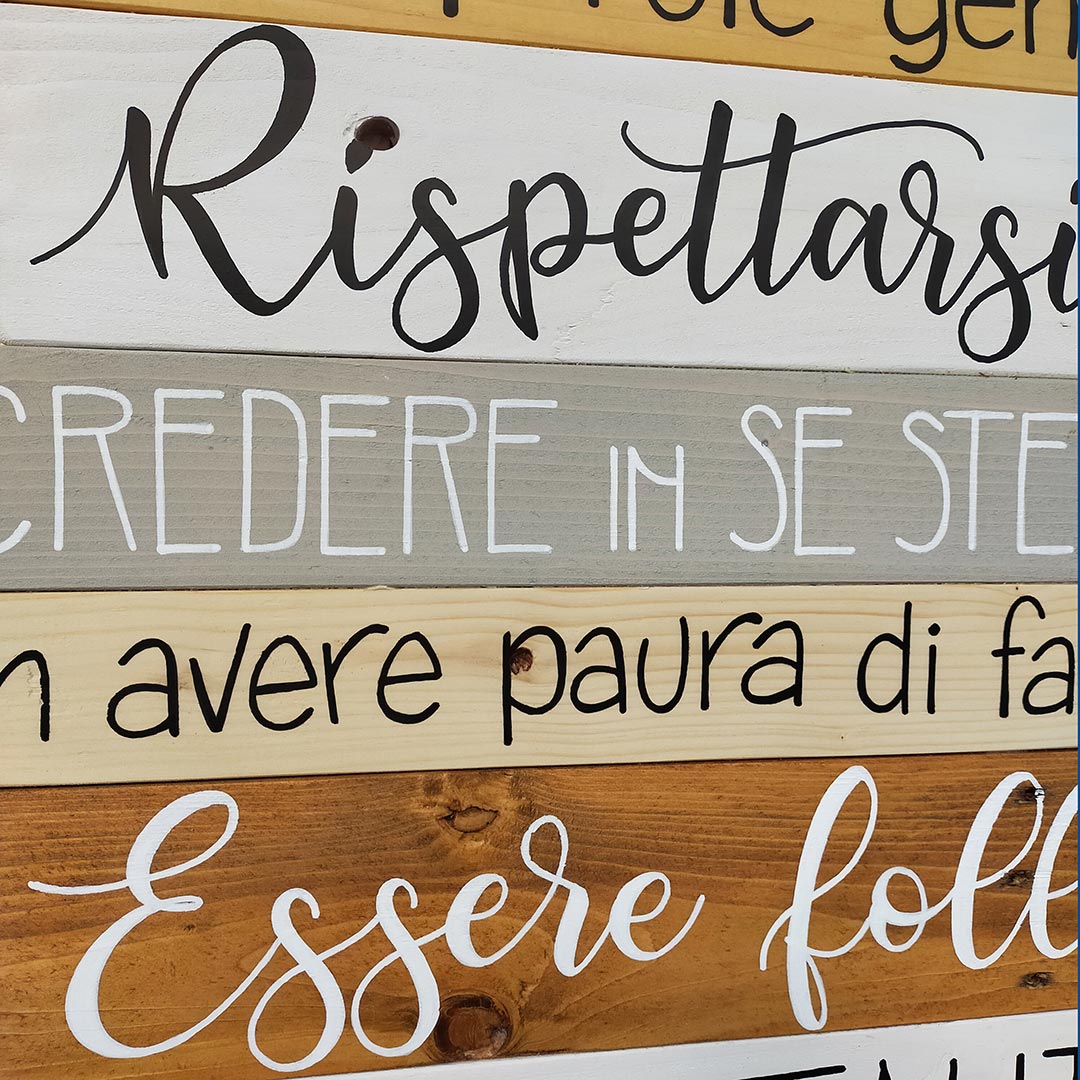 Rispettarsi
CREDERE IN SE STE
avere paura di fa
Essere foll